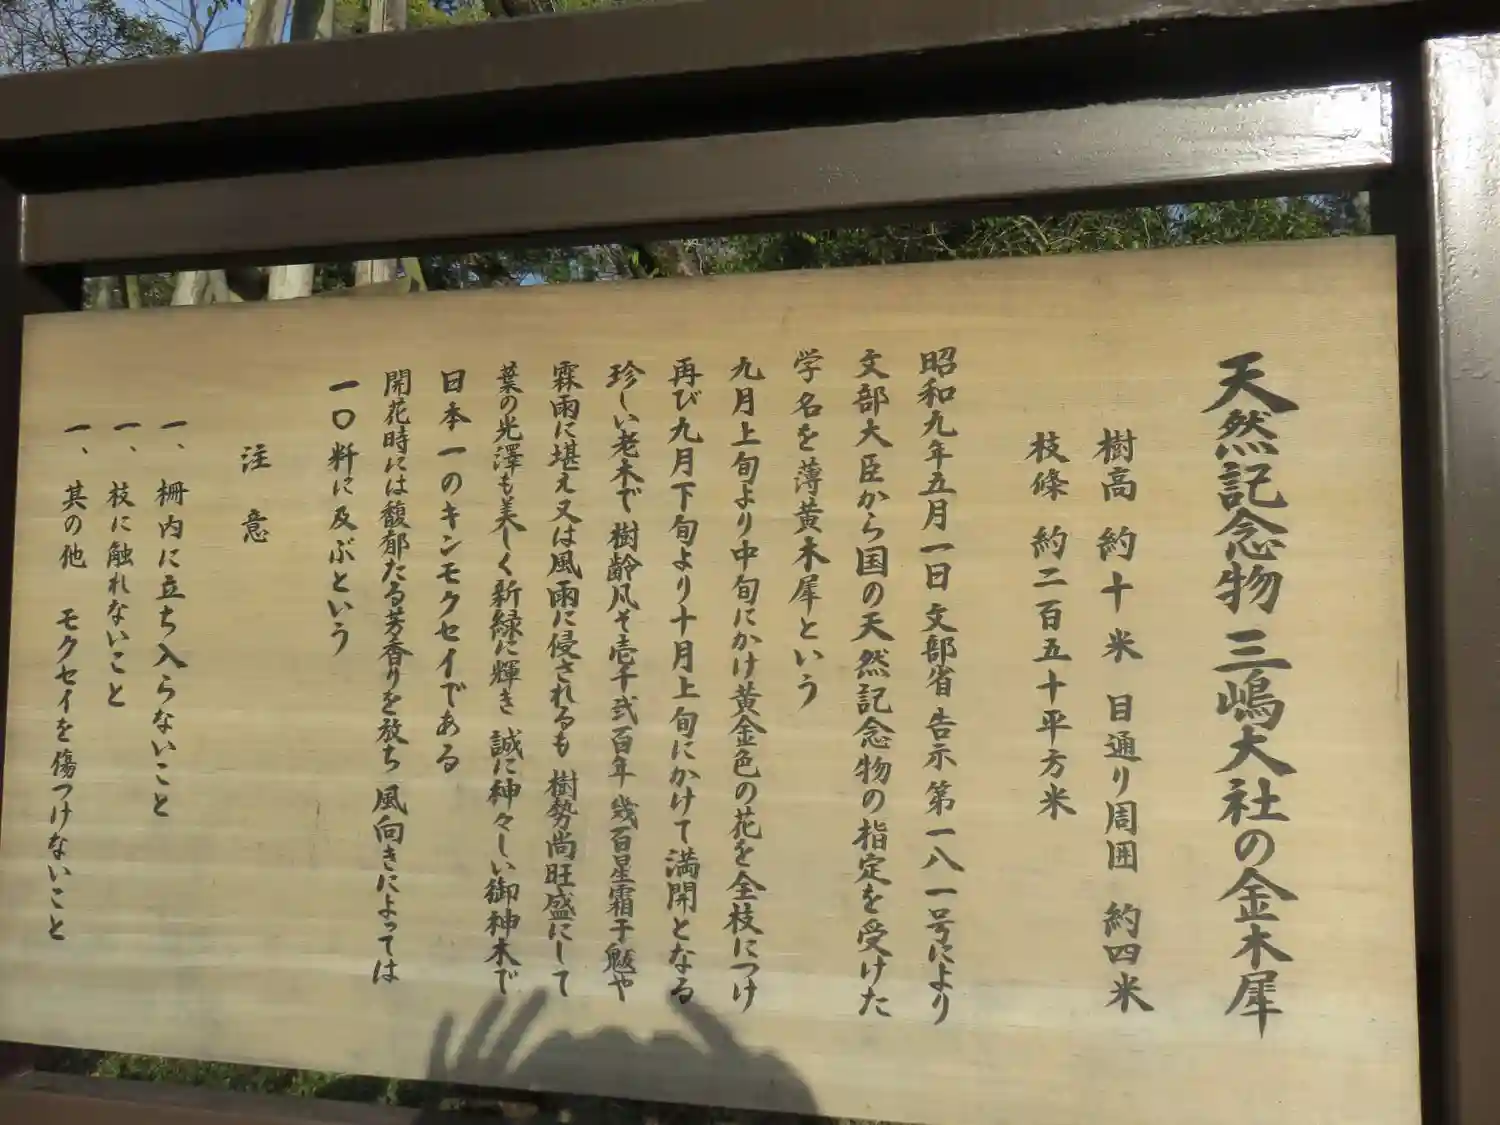 天然記念物 三嶋大社の金木犀
樹高 約十米 目通り周囲 約四米
枝條 約二百五十平方米
昭和九年五月一日文部省告示第一八一号により
文部大臣から国の天然記念物の指定を受けた
学名を薄黄木犀という
九月上旬より中旬にかけ黄金色の花を全枝につけ
再び九月下旬より十月上旬にかけて満開となる
珍しい老木で樹齢凡そ壱千弐百年 幾百星霜干魃や
霖雨に堪え又は風雨に侵されるも 樹勢尚旺盛にして
葉の光澤も美しく新緑に輝き 誠に神々しい御神木で
日本一のキンモクセイである
開花時には馥郁たる芳香りを放ち 風向きによっては
一〇粁に及ぶという
注意
一、柵内に立ち入らないこと
一、枝に触れないこと
一、其の他 モクセイを傷つけないこと